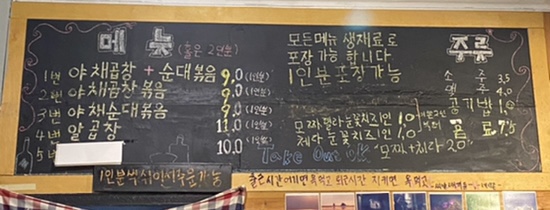 메뉴 (홀은 2인분)
1번 야채곱창 + 순대볶음 9,0 (1인분)
2번 야채곱창볶음 9,0 (1인분)
3번 야채순대볶음 9,0 (1인분)
4번 알곱창 11.0 (1인분)
5번 10.0 (1인분)
모든메뉴 생재료로
포장 가능 합니다
1인분 포장가능
모짜렐라눈꽃치즈1인 1.0
체다눈꽃치즈1인 1.0
Take Out OK
주류
소주 3.5
맥주 4.0
공기밥 1.0
음료
모짜+체다 2.0
1인분씩 섞어서주문가능
출근시간 어기면 죽먹고 퇴근시간 지키면